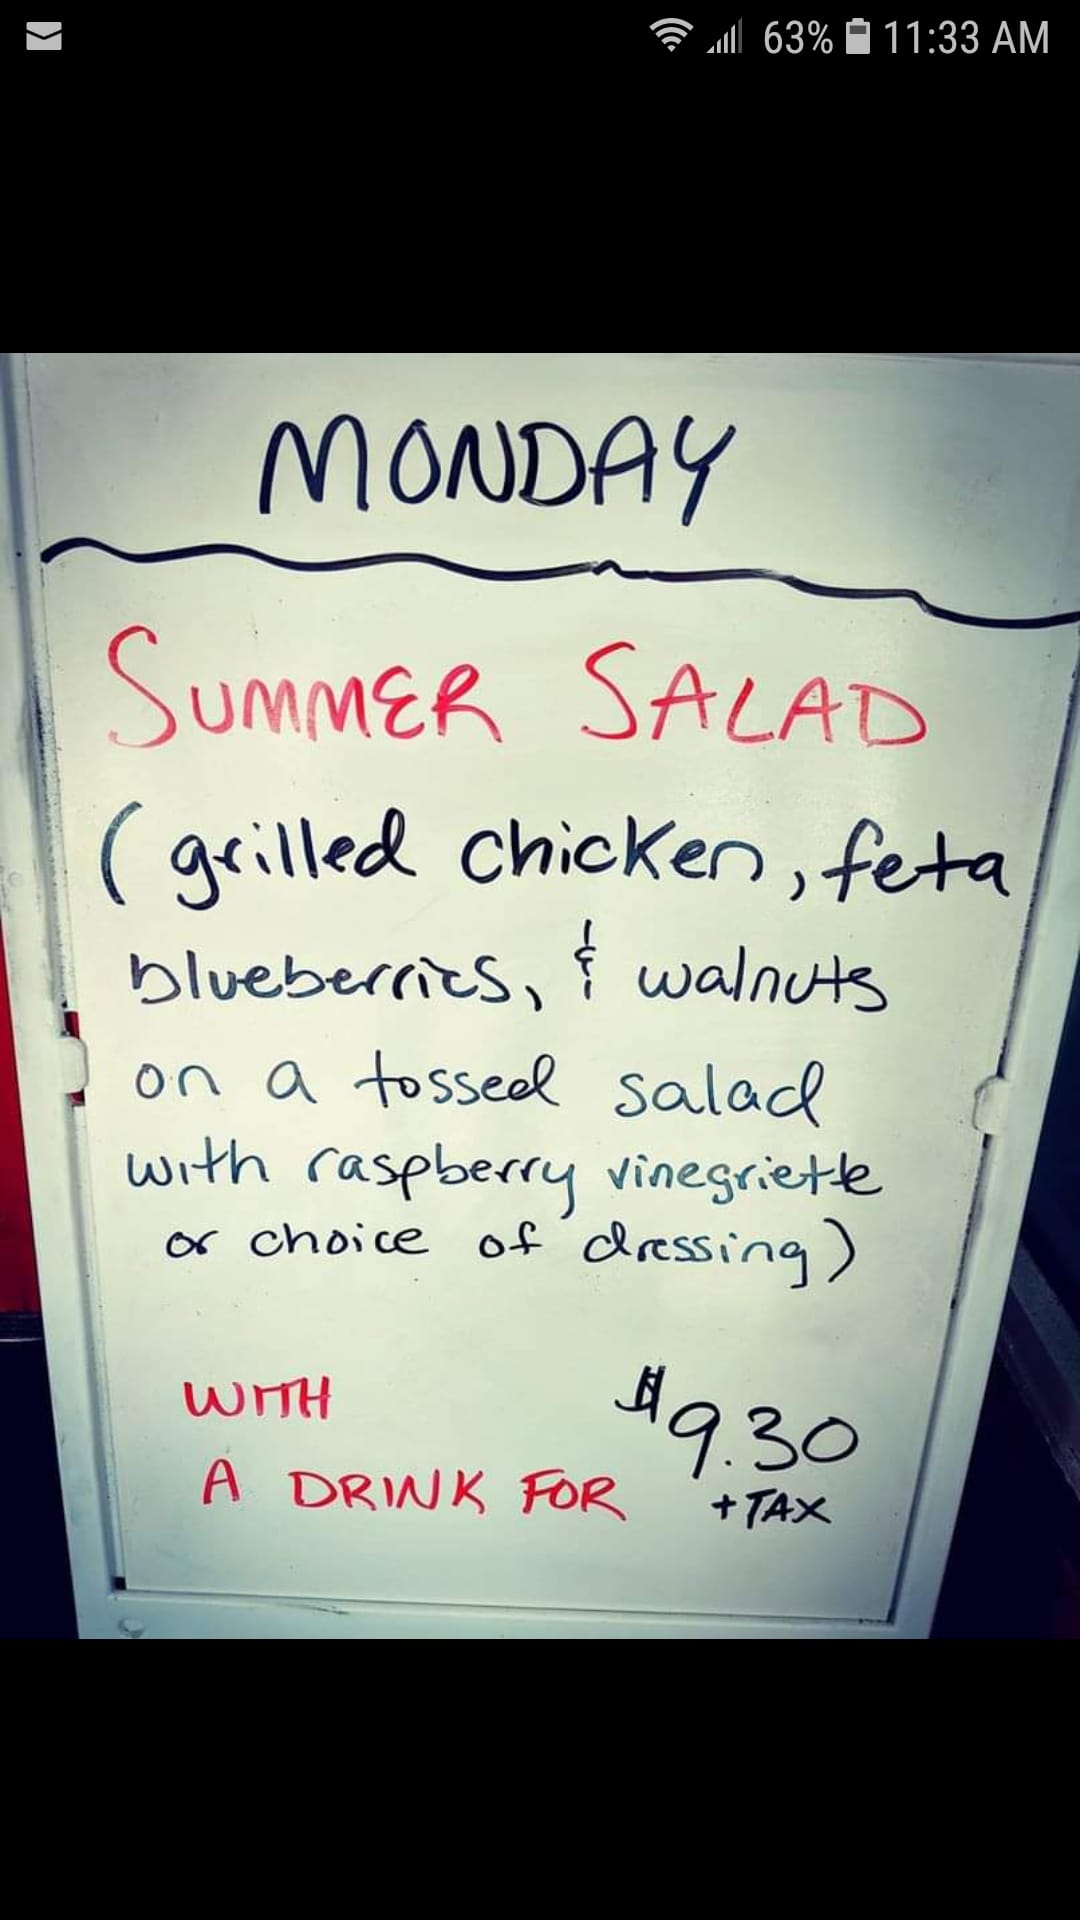 63% 11:33 AM
MONDAY
SUMMER SALAD
(grilled chicken, feta
blueberries, & walnuts
on a tossed salad
with raspberry vinegriette
or choice of dressing)
WITH
A DRINK FOR
$9.30
+ TAX